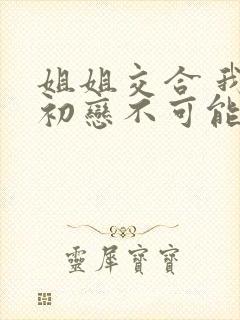 姐姐交合 我
初戀不可能
靈犀寶寶